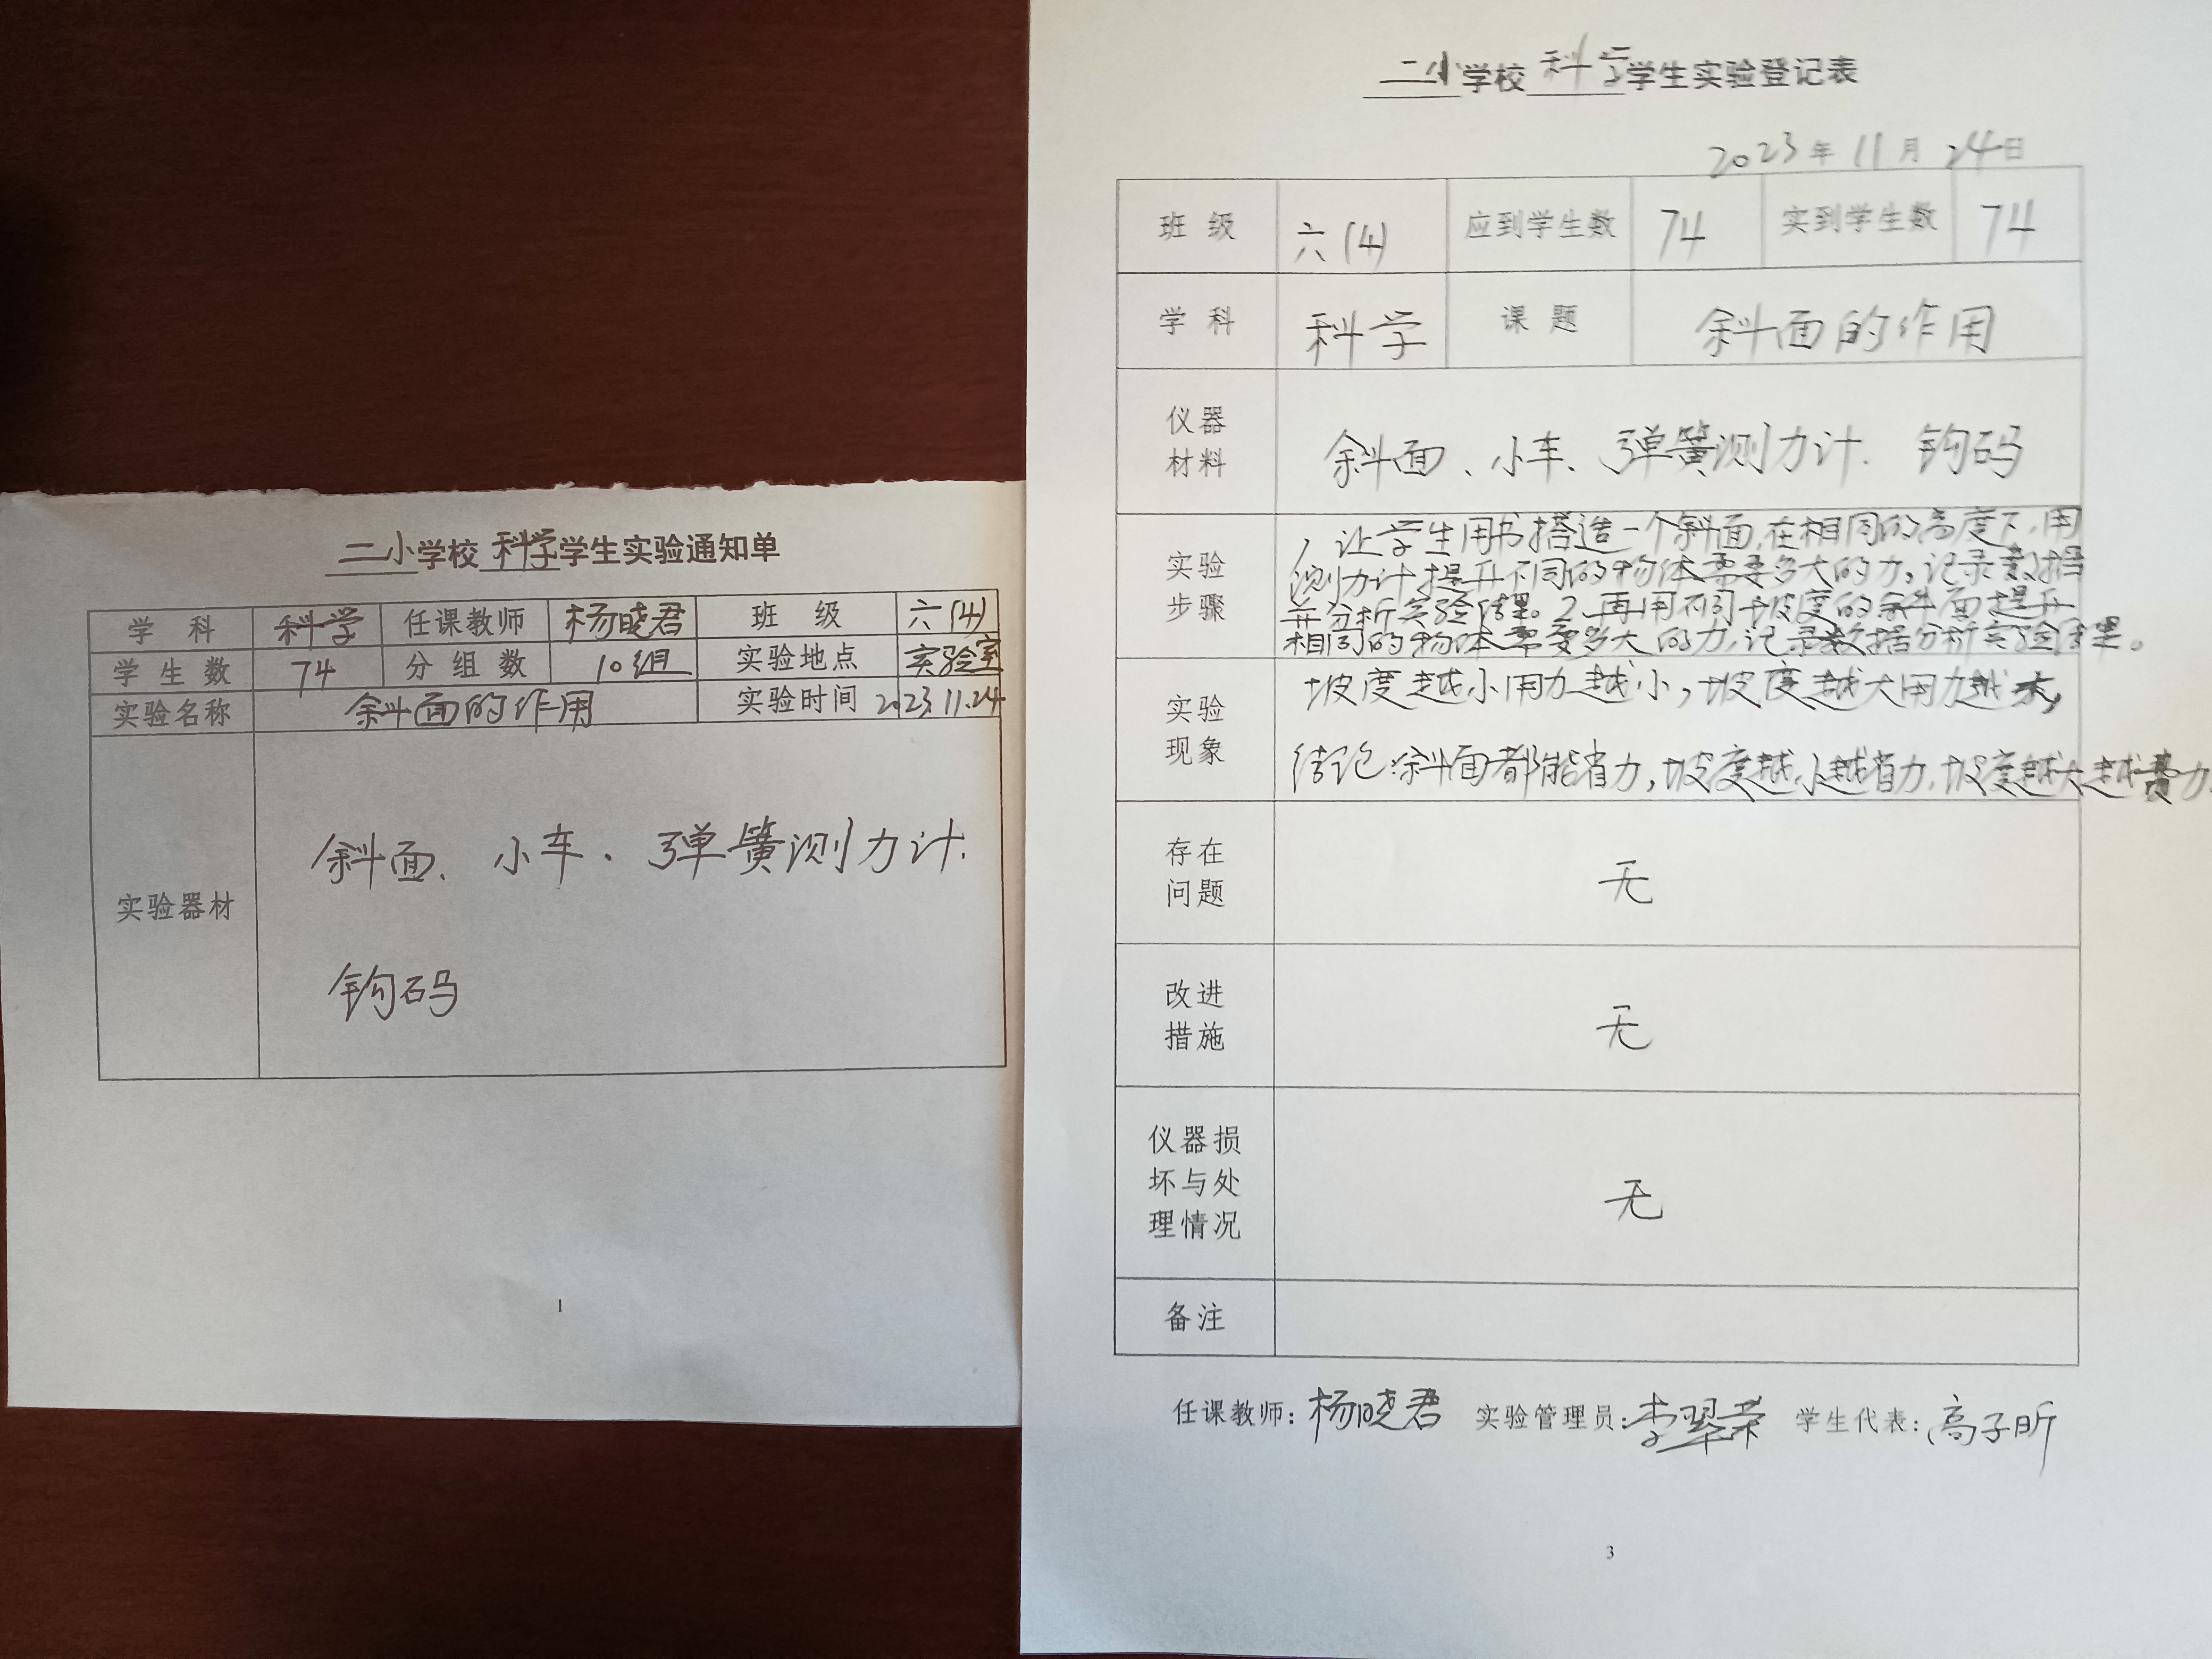 二小学校 科学学生实验通知单
学 科 科学 任课教师 杨晓君 班 级 六(4)
学 生 数 74 分 组 数 10组 实验地点 实验室
实验名称 斜面的作用 实验时间 2023.11.24
实验器材 斜面、小车、弹簧测力计.
钩码
1
二小学校 科学学生实验登记表
2023年 11月 24日
班 级 六(4) 应到学生数 74 实到学生数 74
学 科 科学 课 题 斜面的作用
仪器
材料
斜面、小车、弹簧测力计. 钩码
实验
步骤
1、让学生用书搭造一个斜面,在相同的高度下,用
测力计提升不同的物体需要多大的力,记录数据
并分析实验结果。2、再用不同坡度的斜面提升
相同的物体需要多大的力,记录数据分析实验结果。
实验
现象
坡度越小用力越小,坡度越大用力越大,
结论:斜面都能省力,坡度越小越省力,坡度越大越费力.
存在
问题
无
改进
措施
无
仪器损
坏与处
理情况
无
备注
任课教师: 杨晓君 实验管理员: 李翠荣 学生代表: 高子昕
3